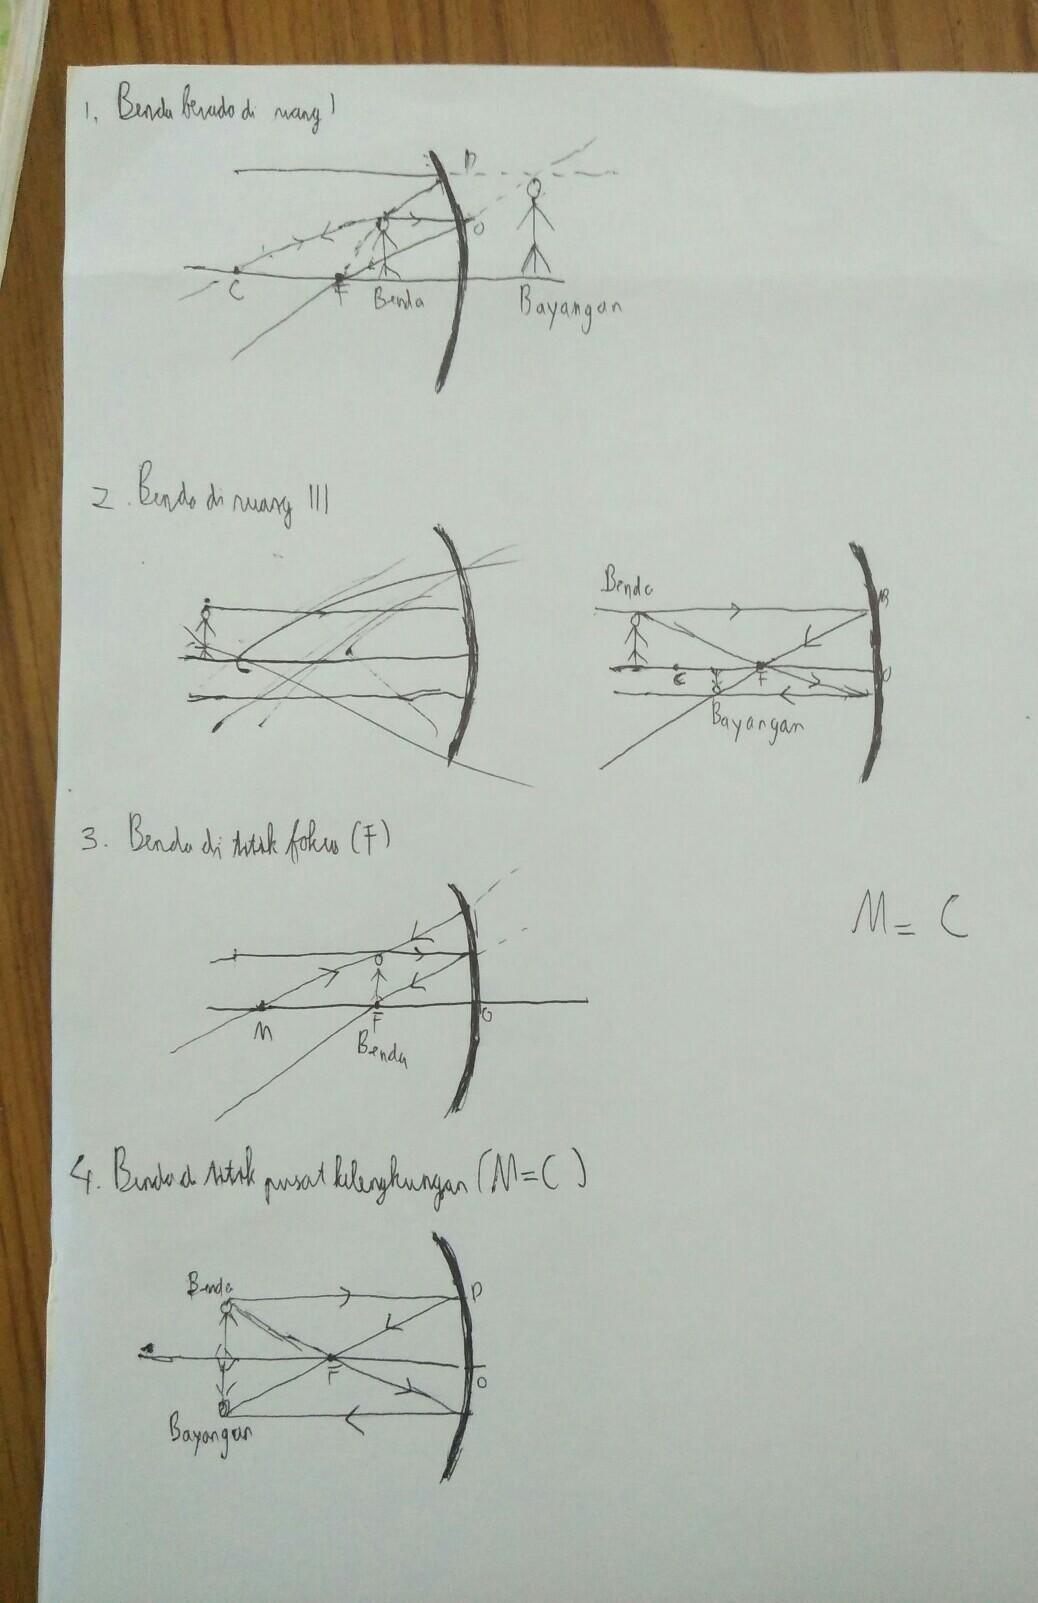 1. Benda berada di ruang I
D
O
C
F
Benda
Bayangan
2. Benda di ruang III
C
Benda
B
C
F
O
Bayangan
3. Benda di titik fokus (F)
M = C
M
F
O
Benda
4. Benda di titik pusat kelengkungan (M=C)
Benda
D
F
O
Bayangan